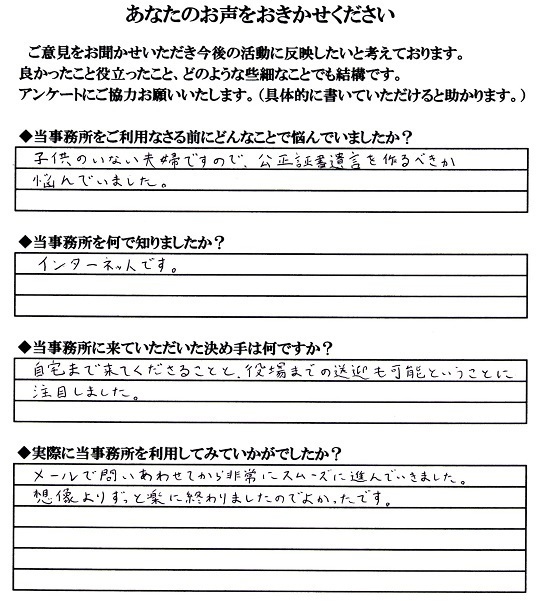 あなたのお声をおきかせください
ご意見をお聞かせいただき今後の活動に反映したいと考えております。
良かったこと役立ったこと、どのような些細なことでも結構です。
アンケートにご協力お願いいたします。(具体的に書いていただけると助かります。)
◆当事務所をご利用なさる前にどんなことで悩んでいましたか?
子供のいない夫婦ですので、公正証書遺言を作るべきか
悩んでいました。
◆当事務所を何で知りましたか?
インターネットです。
◆当事務所に来ていただいた決め手は何ですか?
自宅まで来てくださることと、役場までの送迎も可能ということに
注目しました。
◆実際に当事務所を利用してみていかがでしたか?
メールで問いあわせてから非常にスムーズに進んでいきました。
想像よりずっと楽に終わりましたのでよかったです。